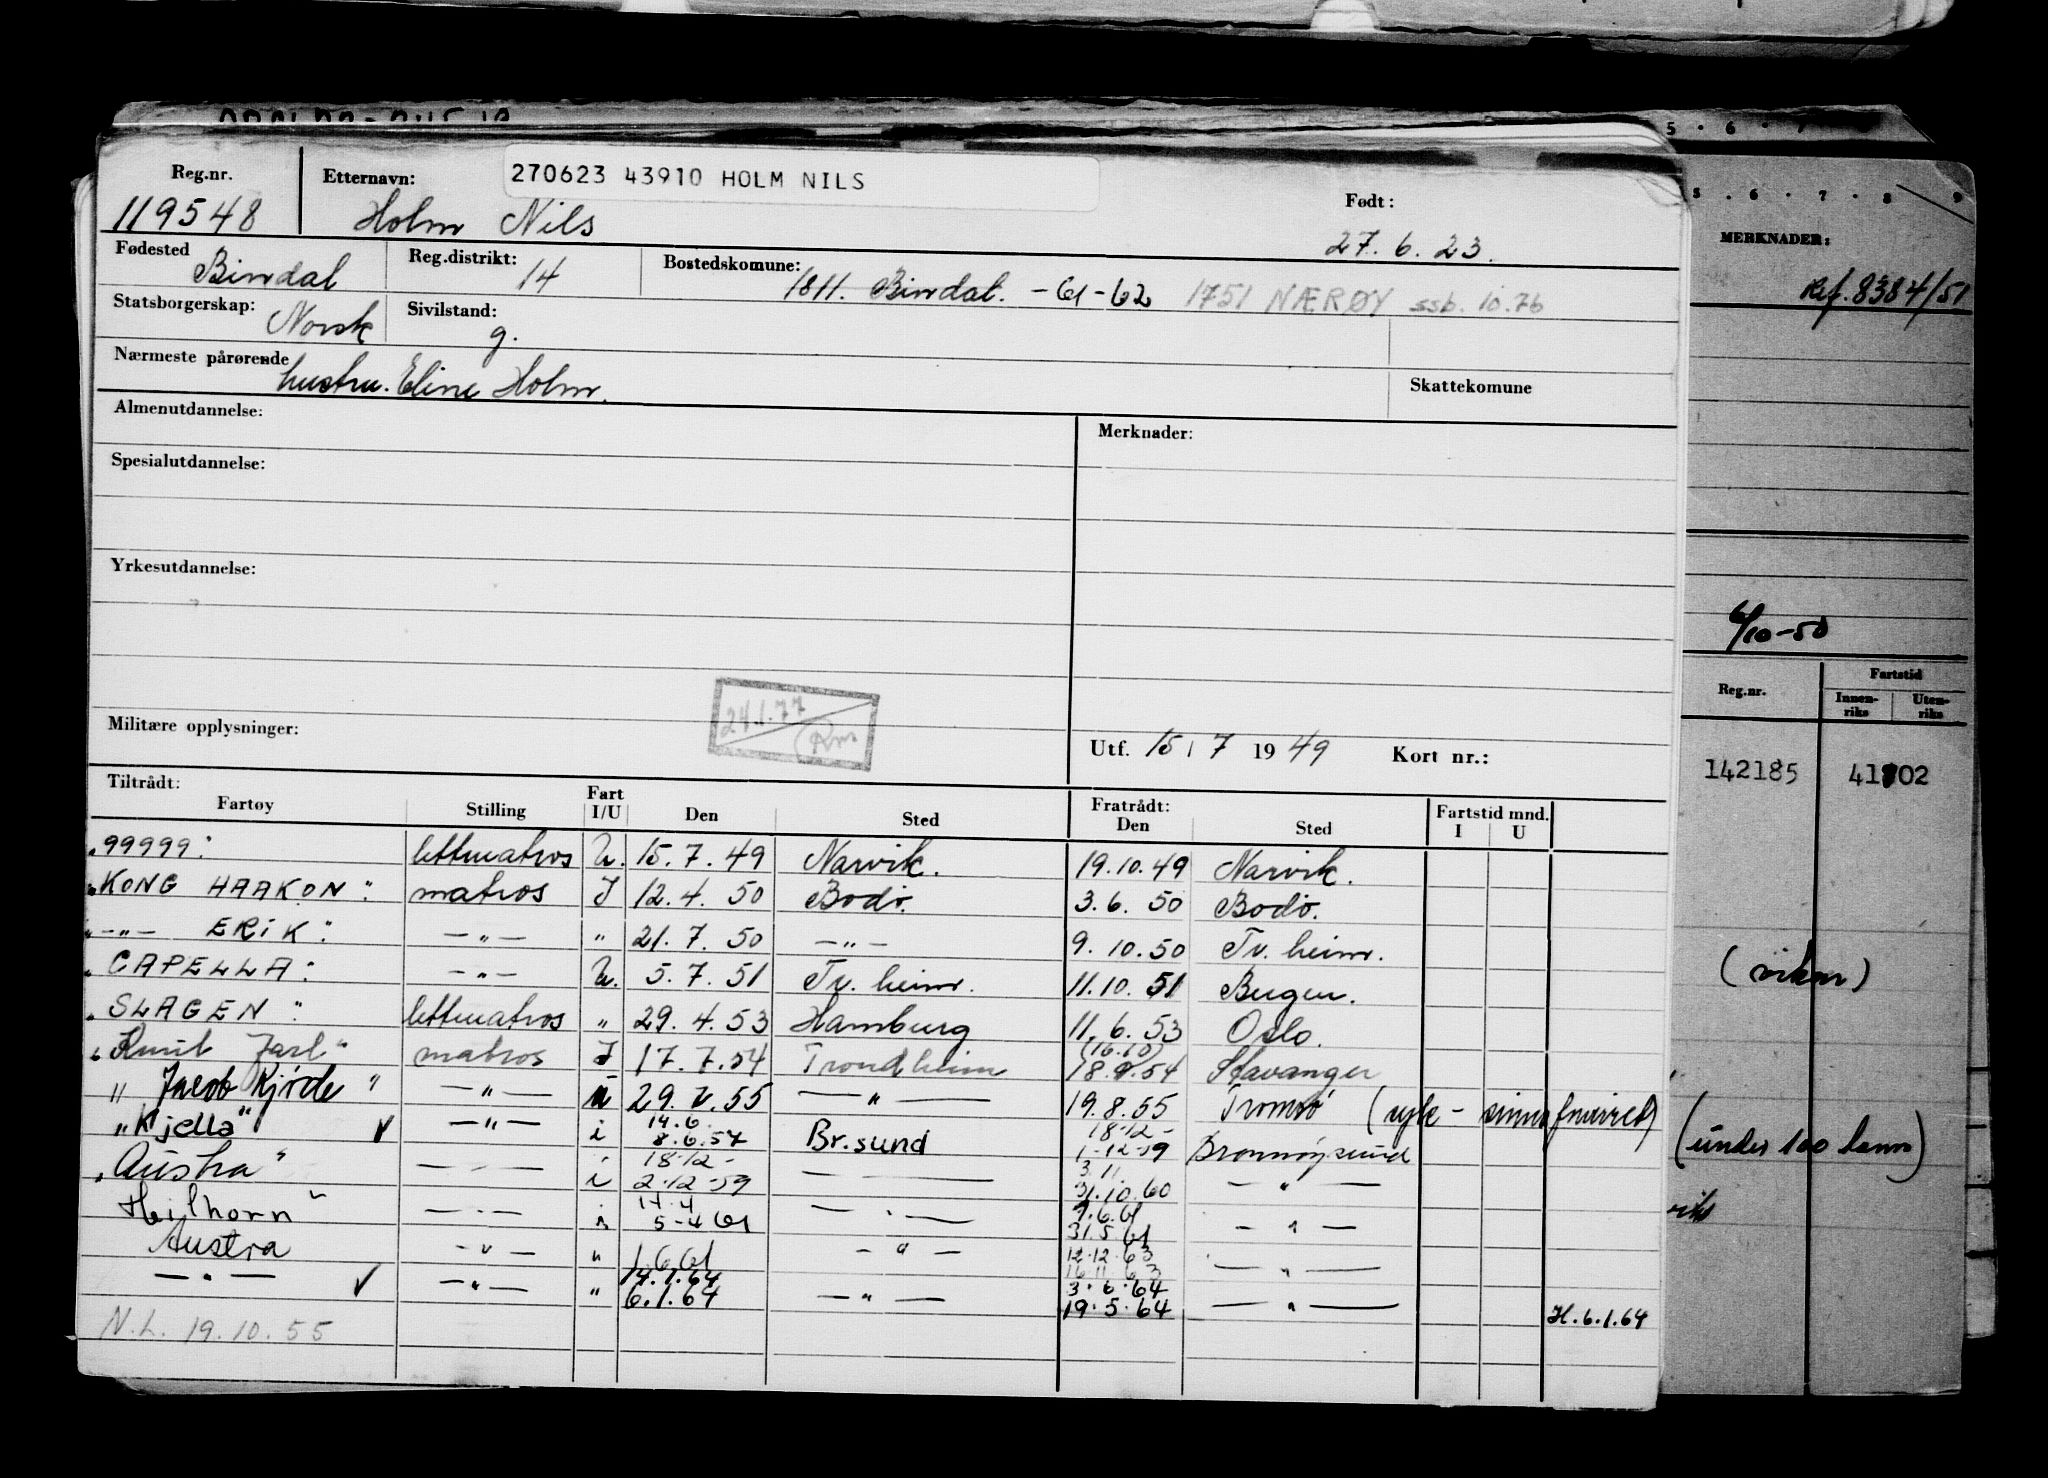 270623 43910 HOLM NILS
Reg.nr.
119548
Etternavn:
Holm Nils
Født:
27.6.23.
Fødested
Bindal
Reg.distrikt:
14
Bostedskomune:
1811. Bindal. -61-62 1751 NÆRØY ssb. 10.76
Statsborgerskap:
Norsk
Sivilstand:
g.
Nærmeste pårørende
hustru. Eline Holm.
Skattekomune
Almenutdannelse:
Merknader:
Spesialutdannelse:
Yrkesutdannelse:
Militære opplysninger:
24.1.77
Utf. 15/7 1949 Kort nr.:
Tiltrådt:
Fartøy Stilling Fart I/U Den Sted Fratrådt: Den Sted Fartstid mnd. I U
"99999" lettmatros U. 15.7.49 Narvik. 19.10.49 Narvik.
"KONG HAAKON" matros I 12.4.50 Bodø. 3.6.50 Bodø.
"-"- ERIK" -"- " 21.7.50 -"- 9.10.50 Tr.heim.
"CAPELLA" -"- U. 5.7.51 Tr.heim. 11.10.51 Bergen.
"SLAGEN" lettmatros " 29.4.53 Hamburg 11.6.53 Oslo.
"Knut Jarl" matros I 17.7.54 Trondheim (16.10) 18.9.54 Stavanger
"Jacob Kjøde" -"- 29.V.55 -"- 19.8.55 Tromsø (syk -
"Kjella" ✓ -"- i 14.6. 8.6.57 Br.sund 18.12- 1-12-59 Brønnøysund
"Austra" -"- i 18.12- 2.12-59 3.11. 31.10.60 -"-
Heilhorn" -"- 14.4 5-4 61 -"- 9.6.61 31.5.61 -"-
Austra -"- " 1.6.61 -"- 12.12.63 16.11.63 -"-
-"- ✓ -"- " 14.1.64 6.1.64 -"- 3.6.64 19.5.64 -"- H.6.1.64
N.L. 19.10.55
5 · 6 · 7
5 . 6 · 7 · 8 9
MERKNADER:
Ref. 8384/51
6/10-50
Reg.nr.
Fartstid
Innenriks
Utenriks
142185
(under 100 tonn)